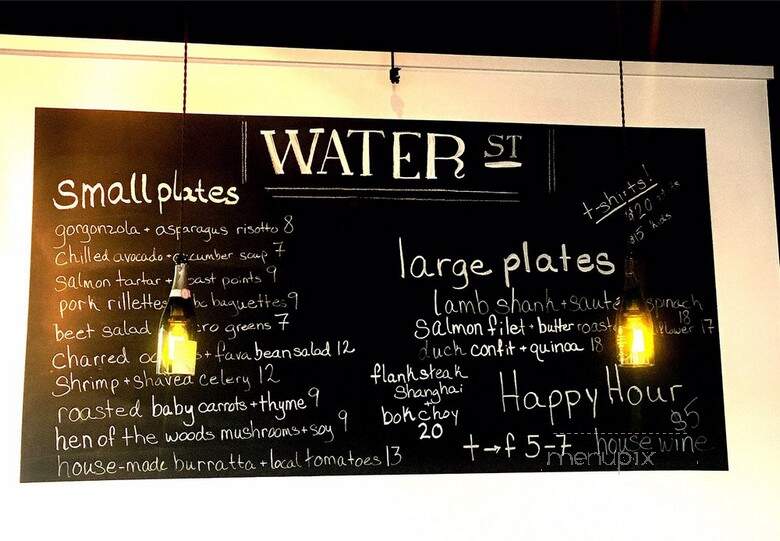 WATER ST
small plates
gorgonzola + asparagus risotto 8
Chilled avocado + cucumber soup 7
Salmon tartar + toast points 9
pork rillettes baguettes 9
beet salad greens 7
Charred + fava bean salad 12
Shrimp + shaved celery 12
roasted baby carrots + thyme 9
hen of the woods mushrooms + soy 9
house-made burratta + local tomatoes 13
t-shirts!
$20
$15 kids
large plates
lamb shank + saute spinach 18
Salmon filet + butter roast 17
duck confit + quinoa 18
flanksteak
Shanghai
+
bok choy
20
Happy Hour
t→f 5-7
$5
house wine
menupix